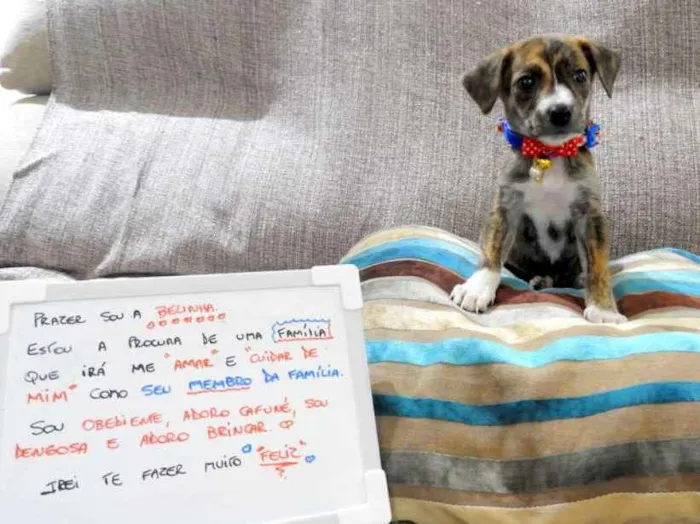 PRAZER SOU A BELINHA.
ESTOU A PROCURA DE UMA FAMÍLIA
QUE IRÁ ME "AMAR" E "CUIDAR DE
MIM" COMO SEU MEMBRO DA FAMÍLIA.
SOU OBEDIENTE, ADORO CAFUNÉ, SOU
DENGOSA E ADORO BRINCAR.
IREI TE FAZER MUITO "FELIZ"